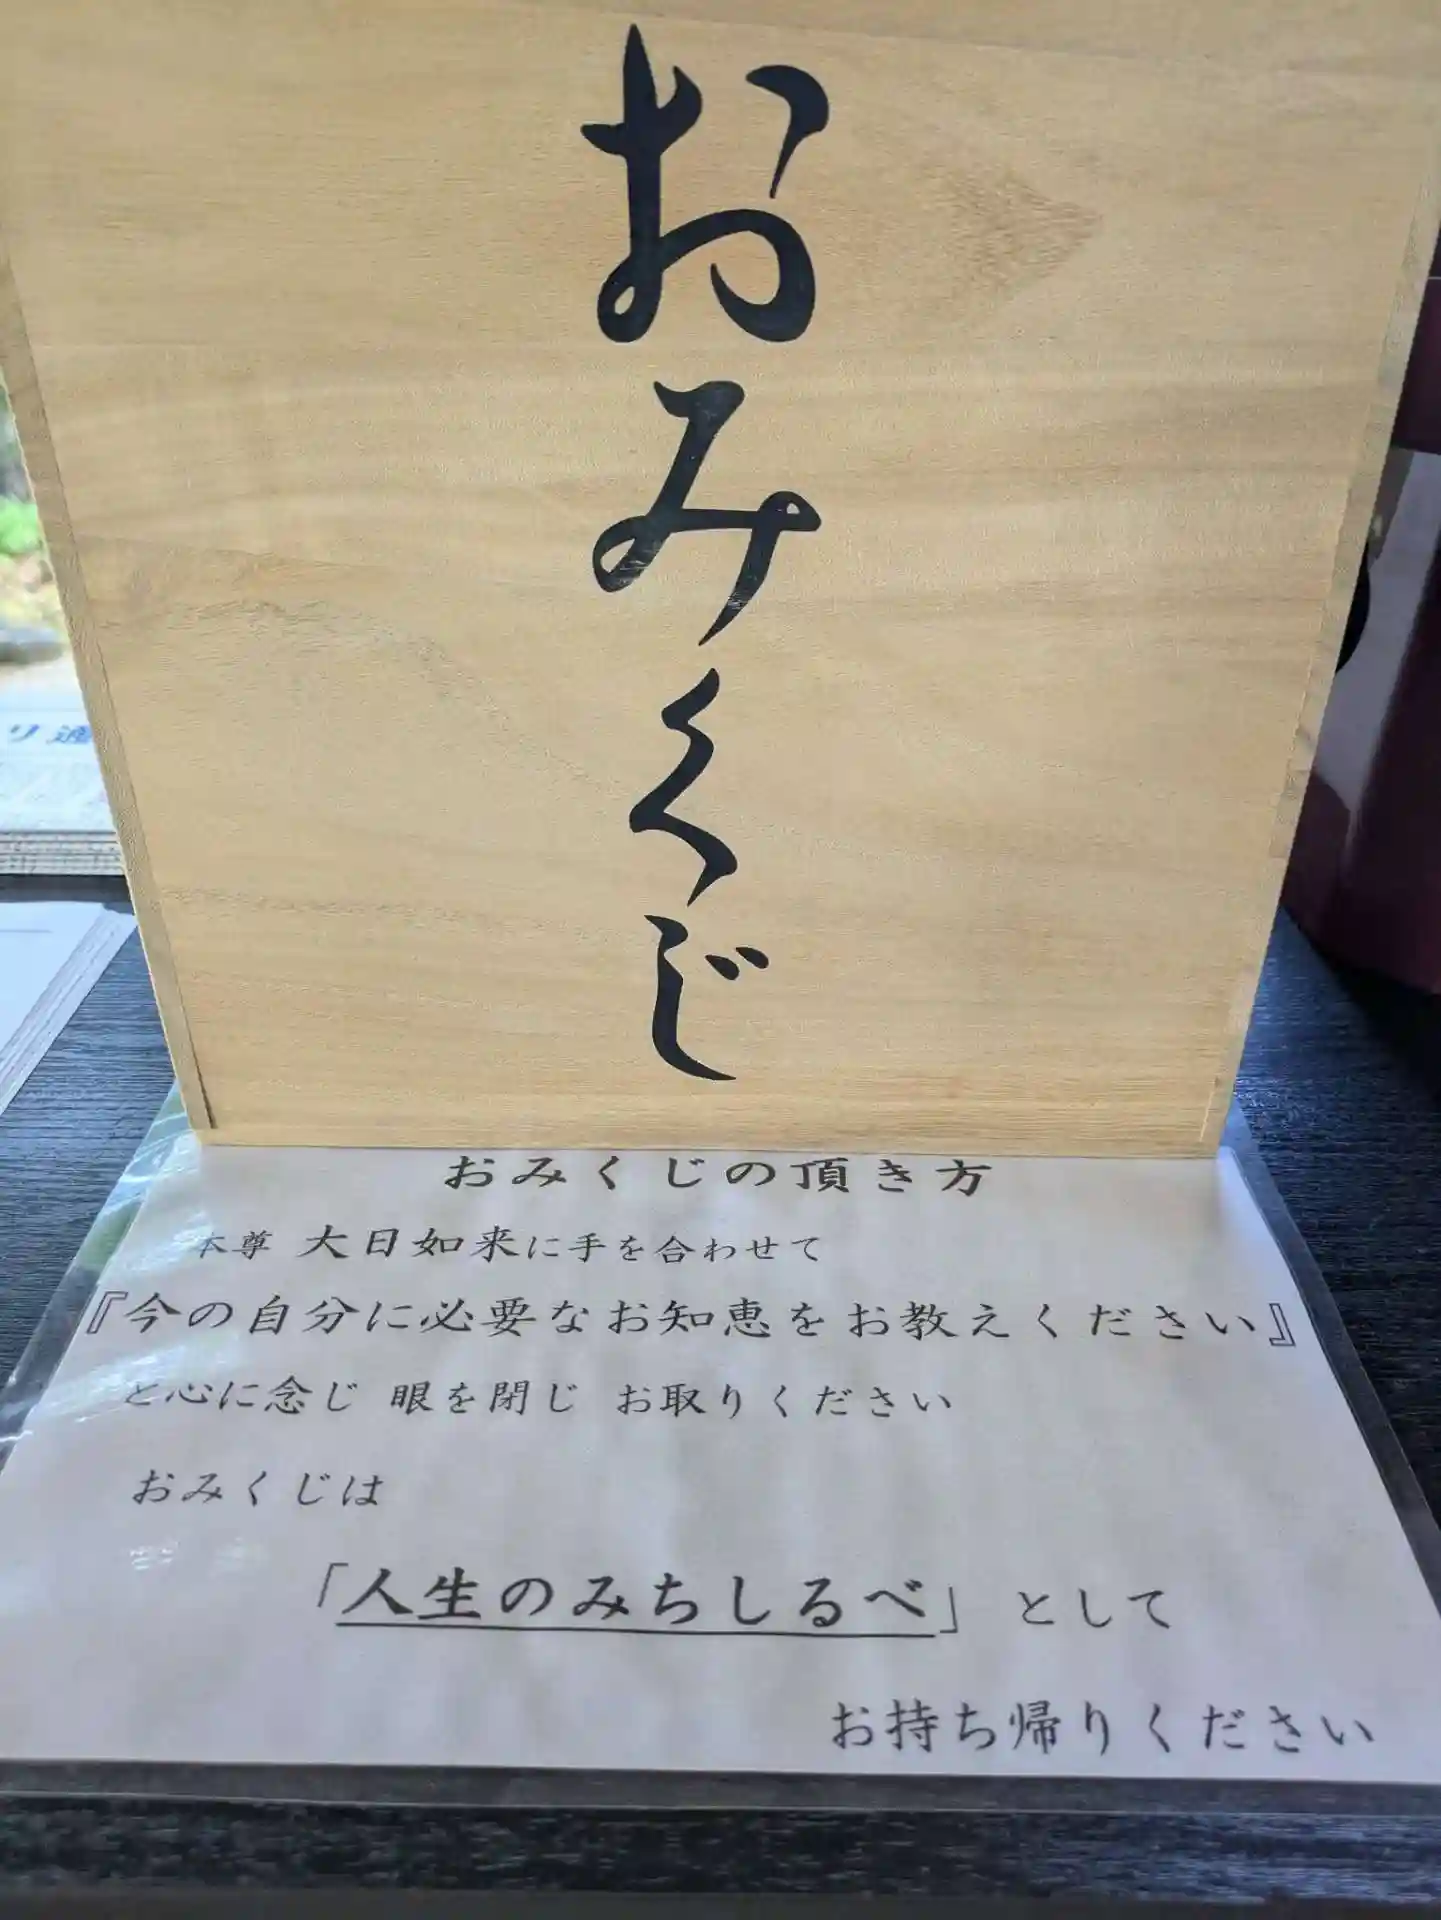 おみくじ
おみくじの頂き方
本尊 大日如来に手を合わせて
『今の自分に必要なお知恵をお教えください』
と心に念じ 眼を閉じ お取りください
おみくじは
「人生のみちしるべ」として
お持ち帰りください